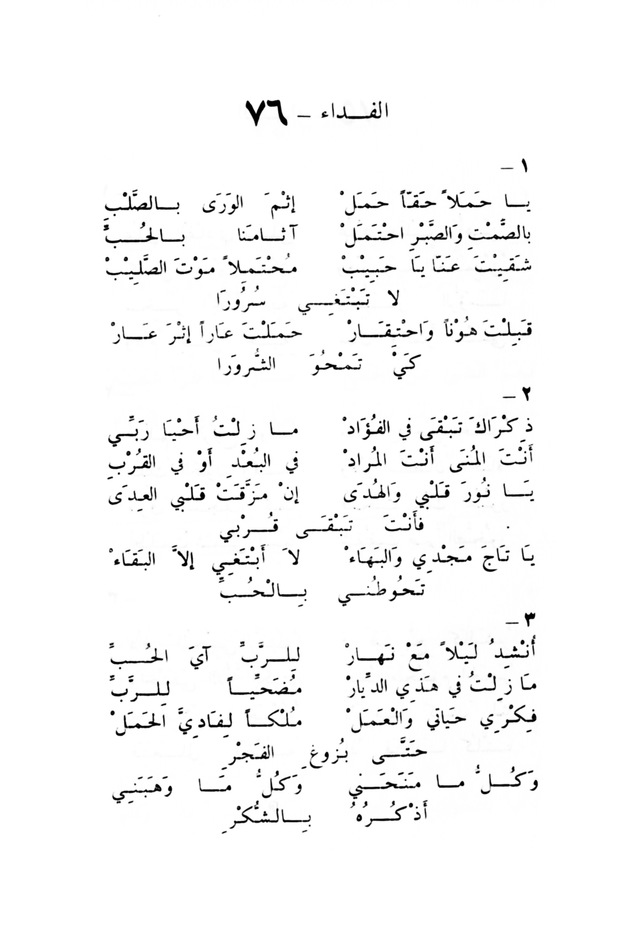 الفـداء - ٧٦
١ -
يـا حَمَلاً حَقـّاً حَمَلْ إِثْمَ الوَرَى بـالصَّلْبِ
بالصَّمْتِ وَالصَّبْرِ احْتَمَلْ آثـامَنَا بـالحُـبِّ
شَقَيْتَ عَنّا يَا حَبِيْبْ مُحْتَمِلاً مَوْتَ الصَّلِيْبْ
لا تَبْتَغـي سُرُورَا
قَبِلْتَ هُوْناً وَاحْتِقَـارْ حَمَلْتَ عَاراً إِثْرَ عَـارْ
كَيْ تَمْحُوَ الشُّرورَا
٢ -
ذِكْرَاكَ تَبْقَى في الفُؤَادْ مـا زِلْتُ أَحْيَا رَبِّي
أَنْتَ المُنَى أَنْتَ المُرادْ في البُعْدِ أَوْ في القُرْبِ
يَـا نُورَ قَلْبي وَالهُدَى إِنْ مَزَّقَتْ قَلْبي العِدَى
فَأَنْتَ تَبْقَـى قُـرْبي
يَا تَاجَ مَجْدِي وَالبَهَاءْ لاَ أَبْتَغـي إِلاَّ البَقَاءْ
تَحُوطُنـي بِـالْحُـبِّ
٣ -
أُنْشِدُ لَيْلاً مَعْ نَهـارْ لِلـرَّبِّ آيَ الحُـبِّ
مَا زِلْتُ في هَذِي الدِّيارْ مُضَحِّيـاً لِلـرَّبِّ
فِكْرِي حَيَاتي وَالْعَمَلْ مُلْكـاً لِفَادِيَّ الحَمَلْ
حَتَّـى بُزُوغِ الفَجْرِ
وَكُـلُّ مـا مَنَحَني وَكُلُّ مَـا وَهَبَنِي
أَذْكُـرُهُ بِـالشُّكْرِ